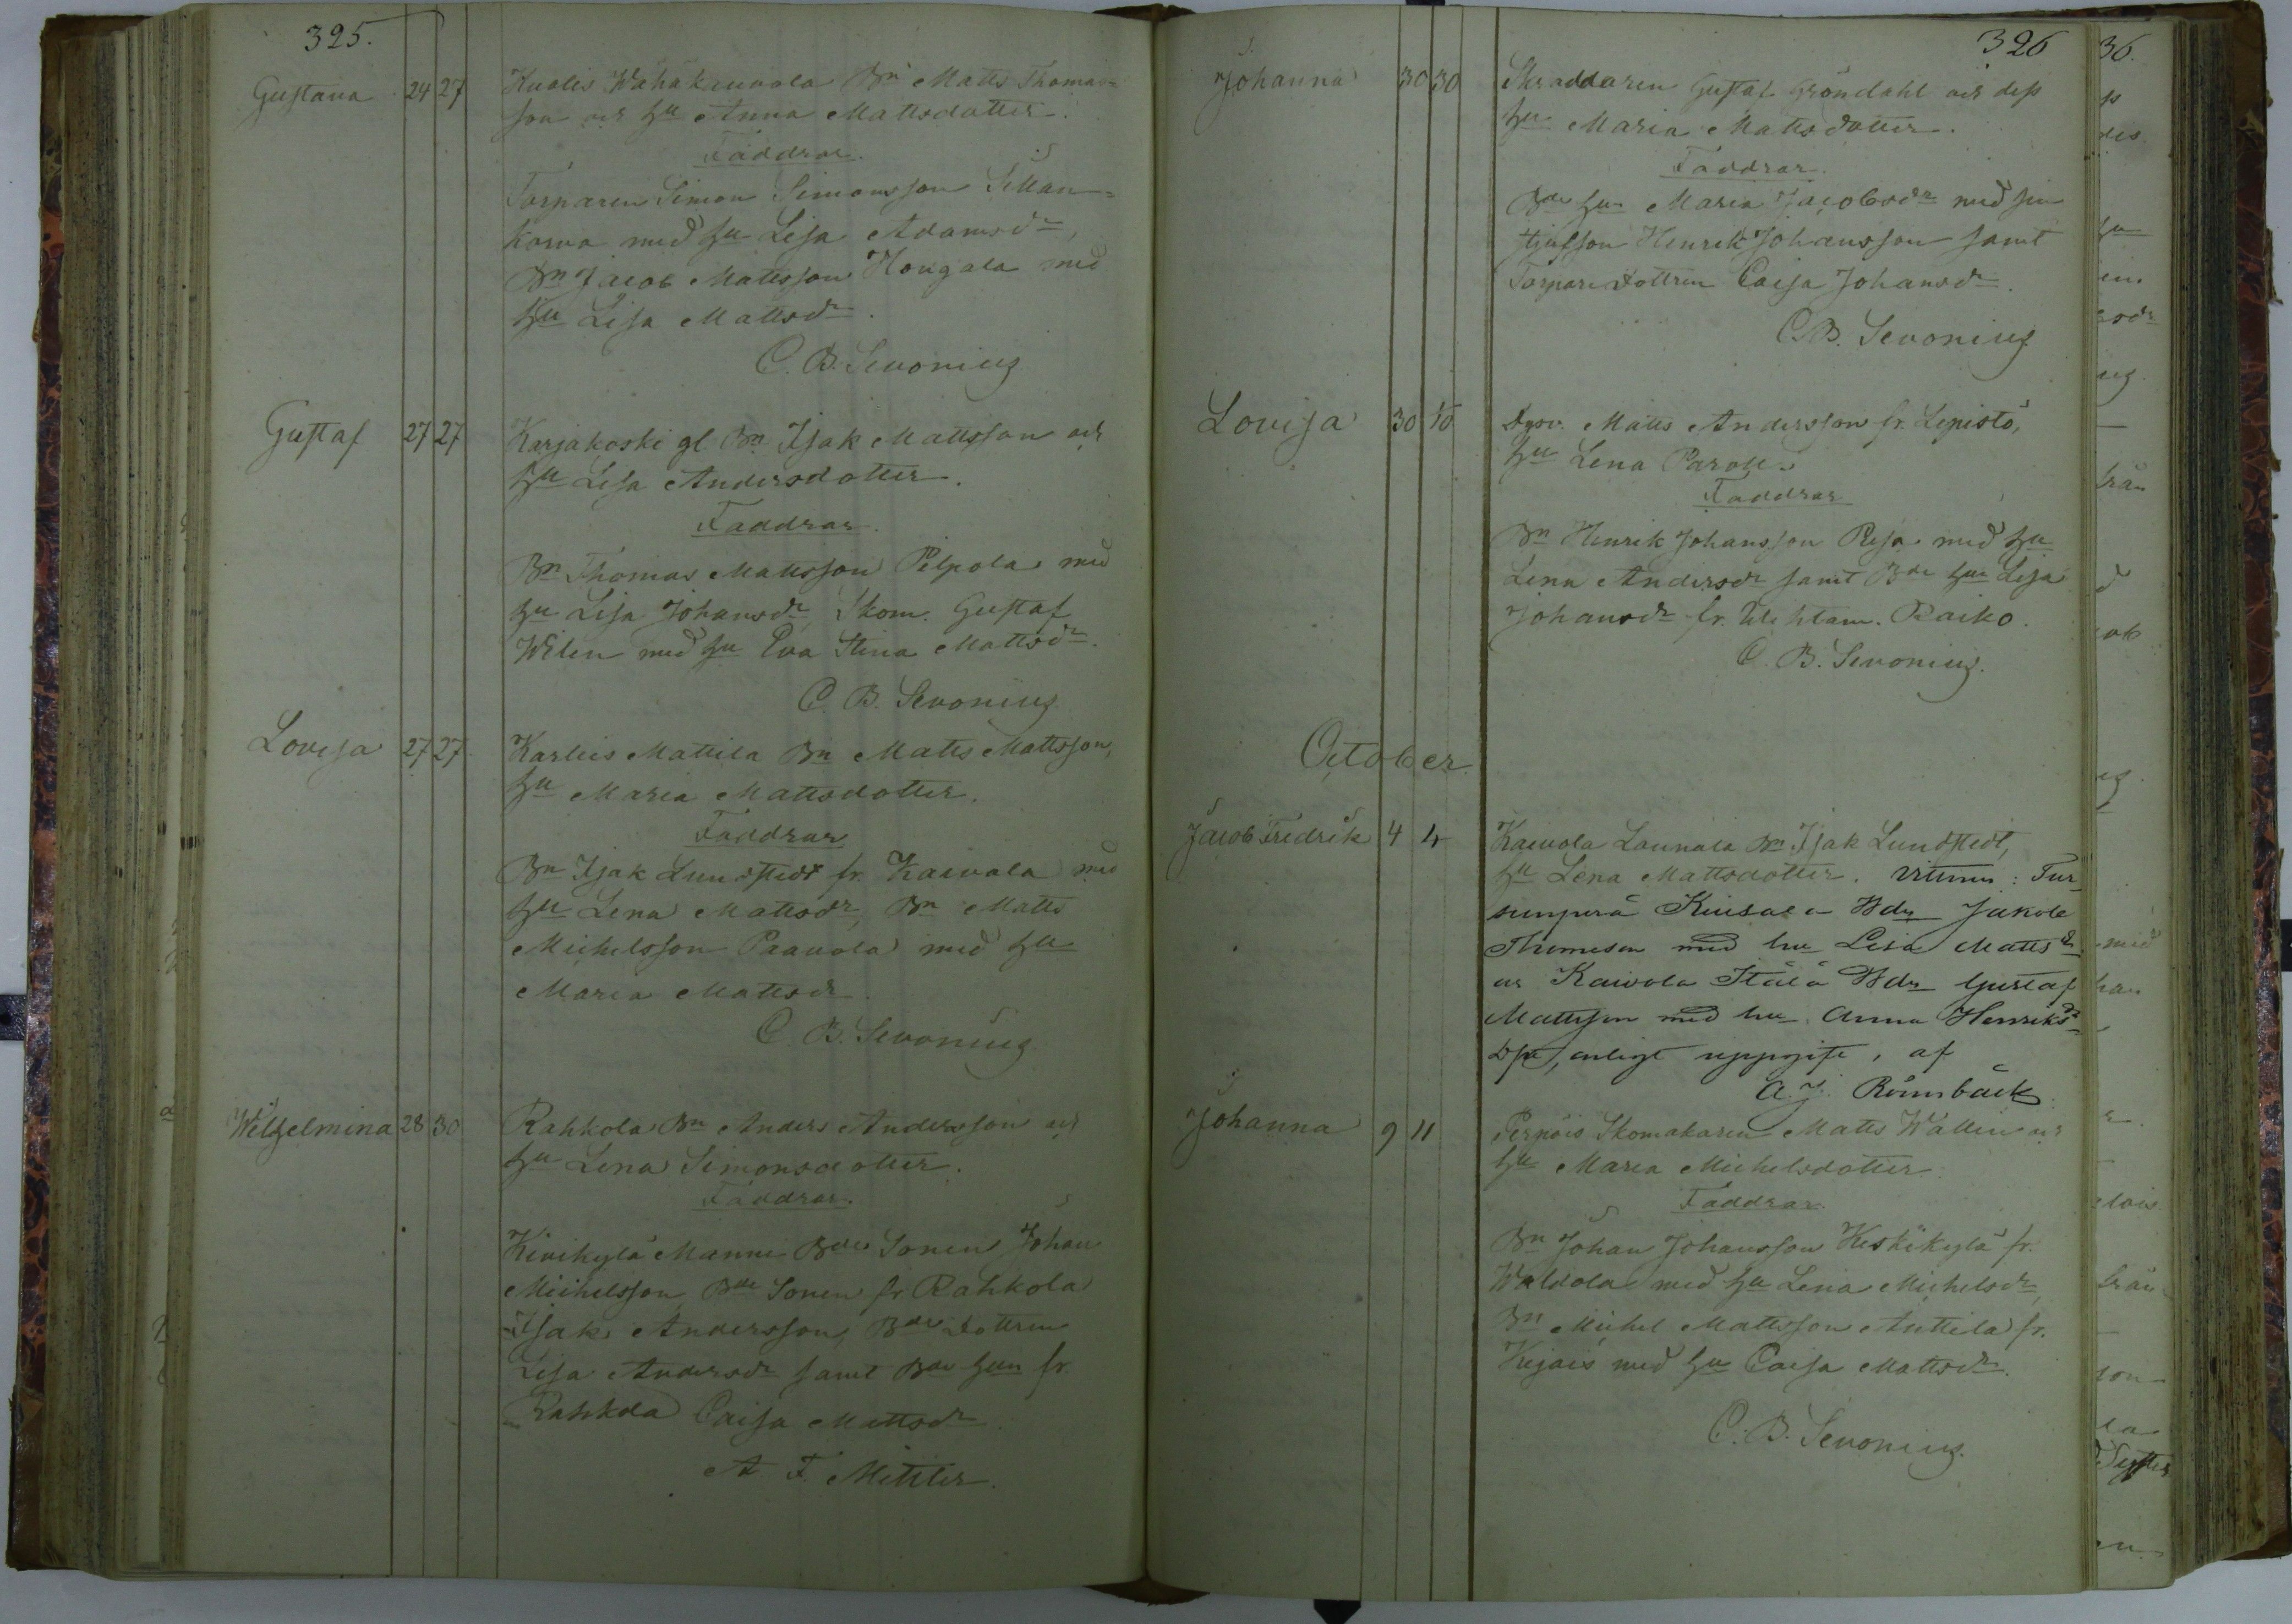 325.
Gustava 24 27 Kuolis Wähäkauvola Bn Matts Thomas=
son och hu Anna Mattsdotter.
Faddrar.
Torparen Simon Simonsson Sillan=
korva med hu Lisa Adamsdr,
Bn Jacob Mattsson Hongala med
hu Lisa Mattsdr.
C. B. Sevonius
Gustaf 27 27 Karjakoski gl Bn Isak Mattsson och
hu Lisa Andersdotter.
Faddrar.
Bn Thomas Mattsson Pelpola med
hu Lisa Johansdr, Skom. Gustaf
Wilen med hu Eva Stina Mattsdr.
C. B. Sevonius
Lovisa 27 27 Karlus Mattila Bn Matts Mattsson,
hu Maria Mattsdotter.
Faddrar
Bn Isak Lundstedt fr. Kaivola med
hu Lena Mattsdr, Bn Matts
Michelsson Paavola med hu
Maria Mattsdr.
C. B. Sevonius
Wilhelmina 28 30 Rahkola Bn Anders Andersson och
hu Lena Simonsdotter.
Faddrar.
Kivikylä Manni Bde Sonen Johan
Michelsson, Bde Sonen fr Rahkola
Isak Andersson, Bde Dottren
Lisa Andersdr samt Bde hun fr.
Rahkola Caisa Mattsdr.
A. F. Mittler.
326
Johanna 30 30 Skraddaren Gustaf Gröndahl och dess
hu Maria Mattsdotter.
Faddrar.
Bde hun Maria Jacobsdr med sin
stjufson Henrik Johansson samt
Torpare Dottren Caisa Johansdr.
C. B. Sevonius
Lovisa 30 10 Matts Andersson fr. Lepistö,
hu Lena
Faddrar
Bn Henrik Johansson Reja med hu
Lena Andersdr samt Bde hun Lisa
Johansdr fr. Raiko.
C. B. Sevonius.
October
Jacob Fredrik 4 4 Kaivola Laurula Bn Isak Lundstedt,
hu Lena Mattsdotter. Vittnen: Tur
sunperä Kiusala Bdn Jakob
Thomeson med hu Lisa Mattsdr
och Kaivola Bdn Gustaf
Mattsson med hu Anna Henriksdr
enligt uppgift, af
A. J. Rönnbäck
Johanna 9 11 Pernöis Skomakaren Matts Wallin och
hu Maria Michelsdotter
Faddrar
Bn Johan Johansson Keskikylä fr.
Waldola med hu Lena Michelsdr,
Bn Michel Mattsson Anttila fr.
Kejois med hu Caisa Mattsdr.
C. B. Sevonius.
36.